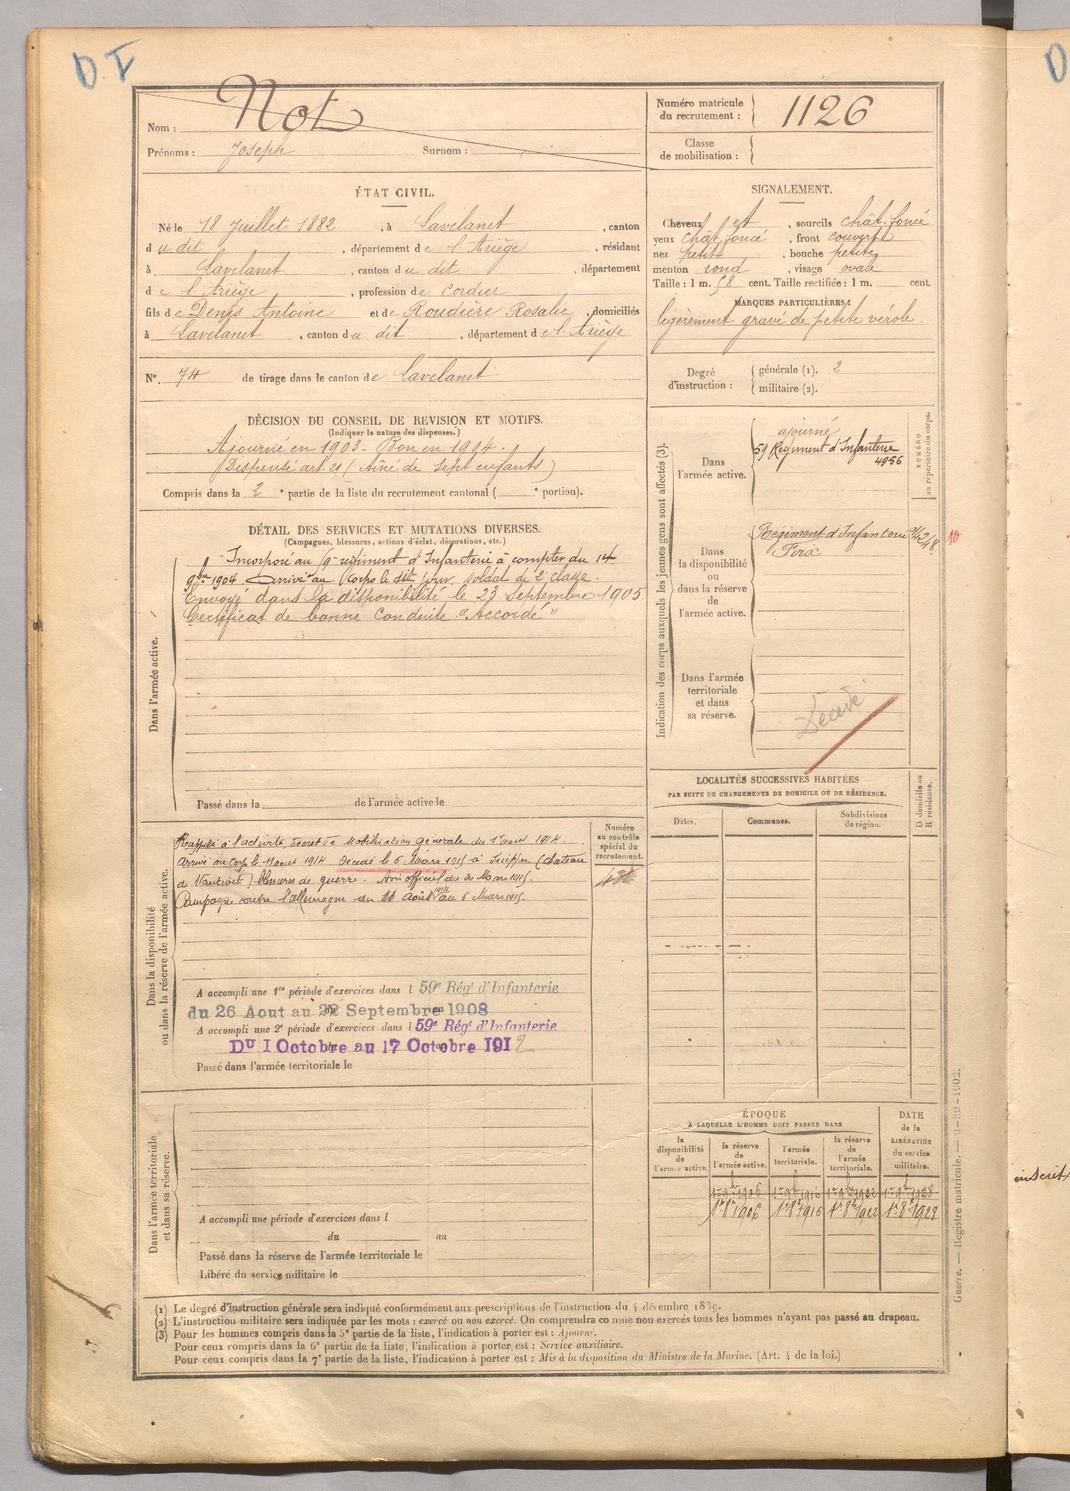 D I
Nom : Not
Prénoms : Joseph Surnom :
Numéro matricule
du recrutement : 1126
Classe
de mobilisation :
ÉTAT CIVIL.
Né le 18 Juillet 1882, à Lavelanet, canton
du dit, département de l'Ariège, résidant
à Lavelanet, canton du dit, département
de l'Ariège, profession de Cordier
fils de Denis Antoine et de Roudière Rosalie, domiciliés
à Lavelanet, canton du dit, département de l'Ariège
N° 74 de tirage dans le canton de Lavelanet
SIGNALEMENT.
Cheveux et, sourcils chât. foncé
yeux chât. foncé, front couvert
nez petit, bouche petite
menton rond, visage ovale
Taille : 1 m. 58 cent. Taille rectifiée : 1 m. cent.
MARQUES PARTICULIÈRES :
légèrement gravé de petite vérole.
Degré
d'instruction :
générale (1). 2
militaire (2).
DÉCISION DU CONSEIL DE REVISION ET MOTIFS.
(Indiquer la nature des dispenses.)
Ajourné en 1903. Bon en 1904.
(Dispensé art. 21 (Aîné de sept enfants)
Compris dans la 2e partie de la liste du recrutement cantonal ( e portion).
DÉTAIL DES SERVICES ET MUTATIONS DIVERSES.
(Campagnes, blessures, actions d'éclat, décorations, etc.)
Dans l'armée active.
Incorporé au 59e régiment d'Infanterie à compter du 14
9bre 1904. Arrivé au Corps le dit jour. soldat de 2e classe.
Envoyé dans la disponibilité le 23 Septembre 1905
Certificat de bonne Conduite "Accordé"
Passé dans la de l'armée active le
Indication des corps auxquels les jeunes gens sont affectés (3).
NUMÉRO
au répertoire du corps.
Dans
l'armée active.
ajourné
59 Régiment d'Infanterie
4956
Dans
la disponibilité
ou
dans la réserve
de
l'armée active.
Régiment d'Infanterie
Foix
10
Dans l'armée
territoriale
et dans
sa réserve.
Décédé
LOCALITÉS SUCCESSIVES HABITÉES
PAR SUITE DE CHANGEMENTS DE DOMICILE OU DE RÉSIDENCE.
D domicile ou
R résidence.
Dates. Communes. Subdivisions
de région.
Dans la disponibilité
ou dans la réserve de l'armée active.
Numéro
au contrôle
spécial du
recrutement.
Rappelé à l'activité, Décret de Mobilisation générale du 1er août 1914.
Arrivé au corps le 11 août 1914. Décédé le 6 Mars 1915 à Suippes (château
de Nantivet) blessures de guerre. Avis officiel du 20 Mars 1915.
Campagne contre l'Allemagne du 11 Août 1914 au 6 Mars 1915.
A accompli une 1re période d'exercices dans l 59e Régt d'Infanterie
du 26 Aout au 22 Septembre 1908
A accompli une 2e période d'exercices dans l 59e Régt d'Infanterie
DU 1 Octobre au 17 Octobre 1912
Passé dans l'armée territoriale le
Dans l'armée territoriale
et dans sa réserve.
A accompli une période d'exercices dans l
du au
Passé dans la réserve de l'armée territoriale le
Libéré du service militaire le
ÉPOQUE
À LAQUELLE L'HOMME DOIT PASSER DANS
DATE
de la
LIBÉRATION
du service
militaire.
la
disponibilité
de
l'armée active.
la réserve
de
l'armée active.
l'armée
territoriale.
la réserve
de
l'armée
territoriale.
1er 9bre 1906 1er 9bre 1916 1er 9bre 1922 1er 9bre 1928
1er 8bre 1906 1er 8bre 1916 1er 8bre 1922 1er 8bre 1928
Guerre. — Registre matricule.
(1) Le degré d'instruction générale sera indiqué conformément aux prescriptions de l'instruction du 4 décembre 1889.
(2) L'instruction militaire sera indiquée par les mots : exercé ou non exercé. On comprendra comme non exercés tous les hommes n'ayant pas passé au drapeau.
(3) Pour les hommes compris dans la 5e partie de la liste, l'indication à porter est : Ajourné.
Pour ceux compris dans la 6e partie de la liste, l'indication à porter est : Service auxiliaire.
Pour ceux compris dans la 7e partie de la liste, l'indication à porter est : Mis à la disposition du Ministre de la Marine. (Art. 4 de la loi.)